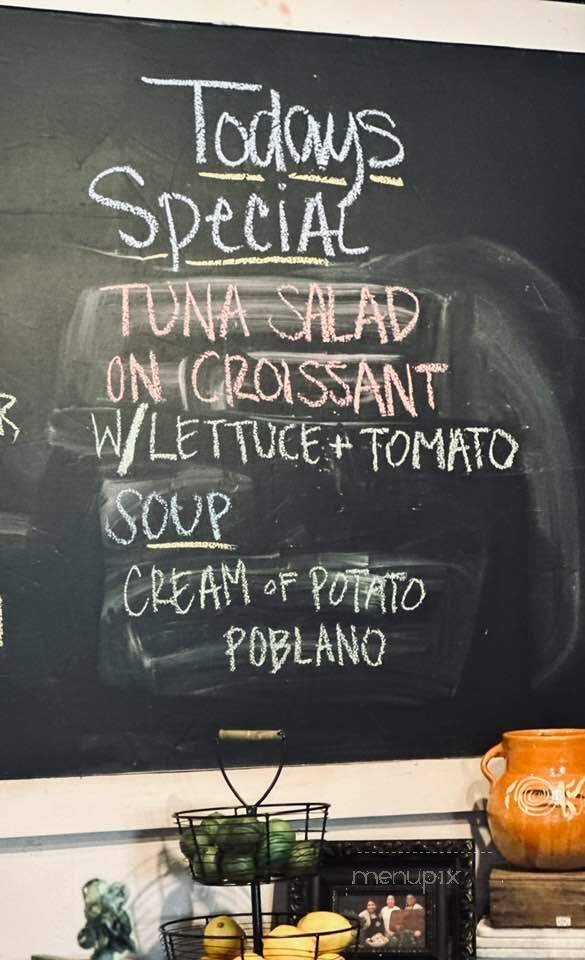 Todays
Special
TUNA SALAD
ON CROISSANT
W/LETTUCE + TOMATO
SOUP
CREAM OF POTATO
POBLANO
menupix